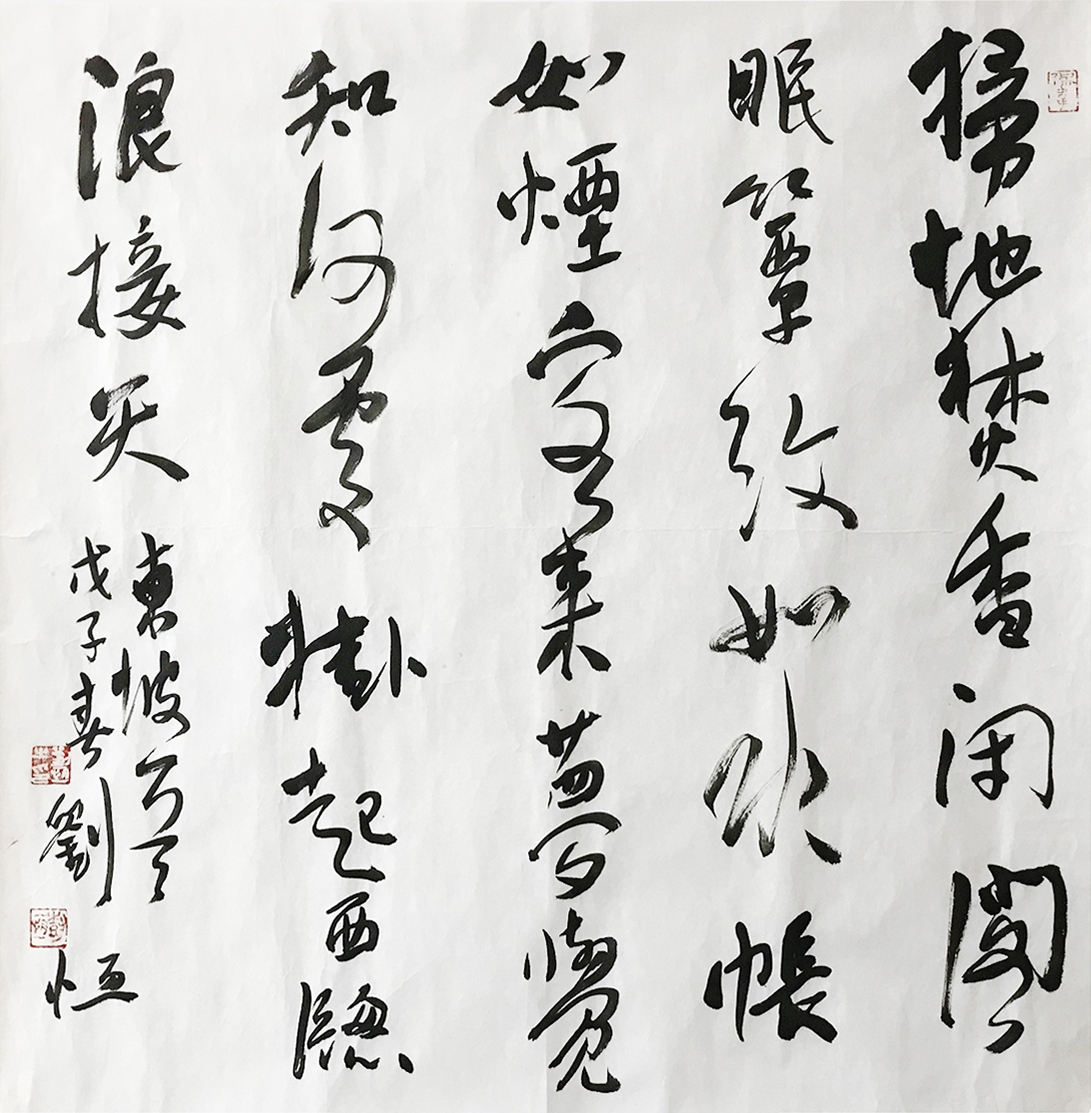 掃地焚香閉閣
眠簟紋如水帳
如煙客來夢覺
知何處掛起西窗
浪接天
東坡
戊子春劉恒